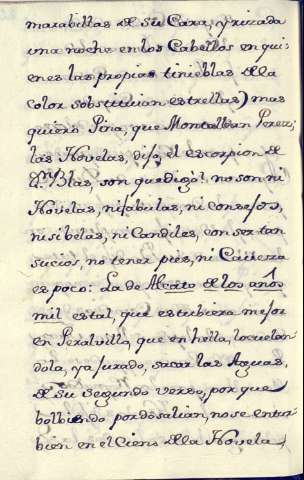 marabillas de su Cara, y rizada
una noche en los Cabellos en qui-
enes las propias tinieblas de la
color sobstituian estrellas) mas
quiero Piña, que Montalban Perez;
las Novelas, dijo, el escorpion de
Dn. Blas, son que digo! no son ni
Novelas, ni fabulas, ni consejos,
ni sibelas, ni Candiles, con ser tan
sucios, no tener pies, ni Caveza
es poco: La de Alcato de los años
mil es tal, que estubiera mejor
en Peralvillo, que en hella, locuelan-
dola, y a Jurado, sacar las Aguas,
de su segundo verso, por que
bolbiendo por dó salian, no se entur-
bien en el Cieno de la Novela,